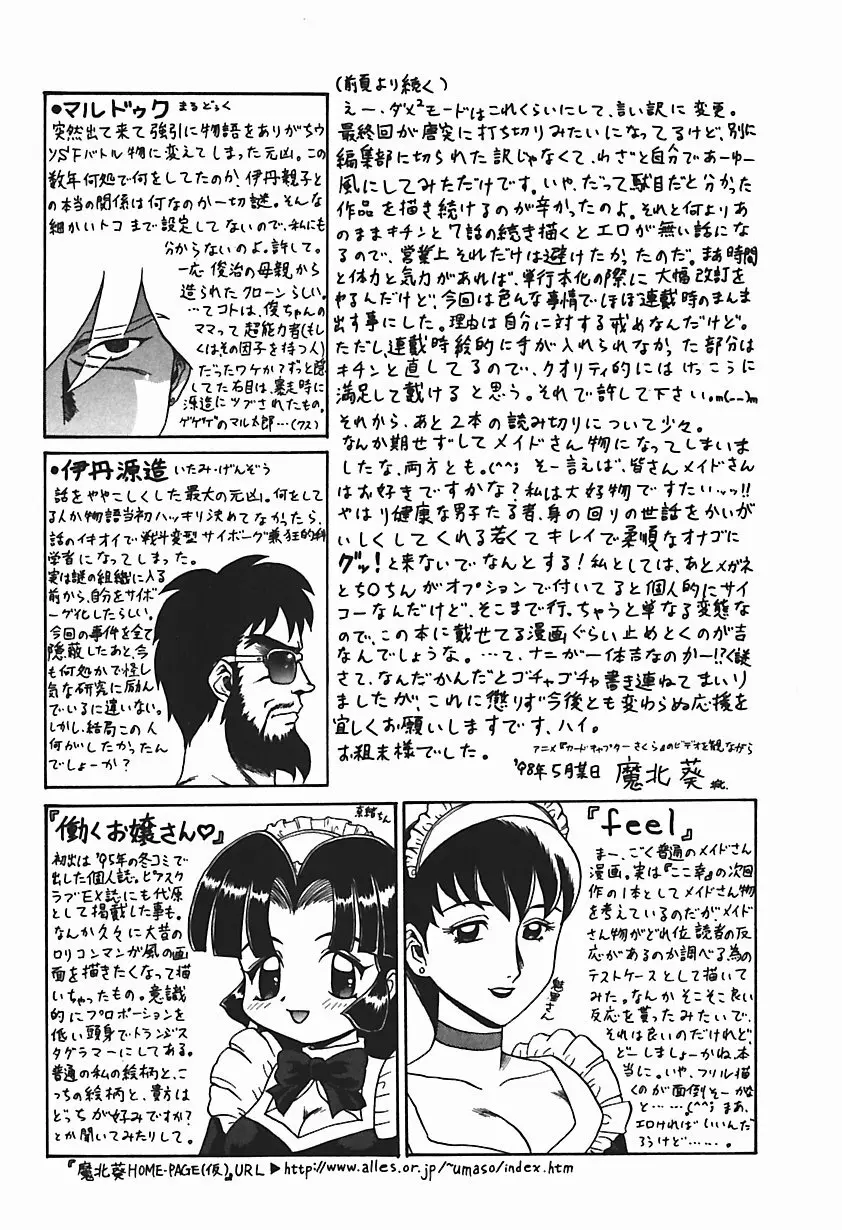 (前頁より続く)
えー、ダメ²モードはこれくらいにして、言い訳に変更。
最終回が唐突に打ち切りみたいになってるけど、別に
編集部に切られた訳じゃなくて、わざと自分であーゆー
風にしてみただけです。いや、だって駄目だと分かった
作品を描き続けるのが辛かったのよ。それと何よりあ
のままキチンと7話の続き描くとエロが無い話にな
るので、営業上それだけは避けたかったのだ。まあ時間
と体力と気力があれば、単行本化の際に大幅改訂を
やるんだけど、今回は色んな事情でほぼ連載時のまんま
出す事にした。理由は自分に対する戒めなんだけど。
ただし、連載時絵的に手が入れられなかった部分は
キチンと直してるので、クオリティ的にはけっこうに
満足して戴けると思う。それで許して下さい。m(__)m
それから、あと2本の読み切りについて少々。
なんか期せずしてメイドさん物になってしまいま
したな、両方とも。(^^; そー言えば、皆さんメイドさん
はお好きですかな?私は大好物ですたいッッ!!
やはり健康な男子たる者、身の回りの世話をかいが
いしくしてくれる若くてキレイで柔順なオナゴに
グッ!と来ないでなんとする!私としては、あとメガネ
とち○ちんがオプションで付いてると個人的にサイ
コーなんだけど、そこまで行っちゃうと単なる変態な
ので、この本に載せてる漫画ぐらい止めとくのが吉
なんでしょうな。…て、ナニが一体吉なのかー!?
さて、なんだかんだとゴチャゴチャ書き連ねてまいり
ましたが、これに懲りず今後とも変わらぬ応援を
宜しくお願いしますです、ハイ。
お粗末様でした。
アニメ『カードキャプターさくら』のビデオを観ながら
'98年5月某日 魔北葵
●マルドゥク まるどぅく
突然出て来て強引に物語をありがちウ
ソSFバトル物に変えてしまった元凶。この
数年何処で何をしてたのか、伊丹親子と
の本当の関係は何なのか一切謎。そんな
細かいトコまで設定してないので、私にも
分からないのよ。許して。
一応俊治の母親から
造られたクローンらしい。
…てコトは、俊ちゃんの
ママって超能力者(もし
くは、その因子を持つ人)
だったワケか?ずっと隠
してた右目は、暴走時に
源造にツブされたもの。
ゲゲゲのマル太郎…(クス)
●伊丹源造 いたみ・げんぞう
話をややこしくした最大の元凶。何をして
る人か物語当初ハッキリ決めてなかったら、
話のイキオイで戦斗変型サイボーグ兼狂的科
学者になってしまった。
実は謎の組織に入る
前から、自分をサイボ
ーグ化したらしい。
今回の事件を全て
隠蔽したあと、今
も何処かで怪し
気な研究に励ん
でいるに違いない。
しかし、結局この人
何がしたかったん
でしょーか?
『働くお嬢さん♡』
奈緒さん
初出は'95年の冬コミで
出した個人誌。ピアスク
ラブEX誌にも代原
として掲載した事も。
なんか久々に大昔の
ロリコンマンガ風の画
面を描きたくなって描
いちゃったもの。意識
的にプロポーションを
低い頭身でトランジス
タグラマーにしてある。
普通の私の絵柄と、こ
っちの絵柄と、貴方は
どっちが好みですか?
とか聞いてみたりして。
『feel』
魅里さん
まー、ごく普通のメイドさん
漫画。実は『ここ幸』の次回
作の1本としてメイドさん物
を考えているのだが、メイド
さん物がどれ位読者の反
応があるのか調べる為の
テストケースとして描いて
みた。なんかそこそこ良い
反応を貰ったみたいで、
それは良いのだけれど、
どーしましょーかね、本
当に。いや、フリル描
くのが面倒そーかな
と……(^^; まあ、
エロければいいんだ
ろうけど……。
『魔北葵HOME-PAGE(仮)』URL▶http://www.alles.or.jp/~umaso/index.htm